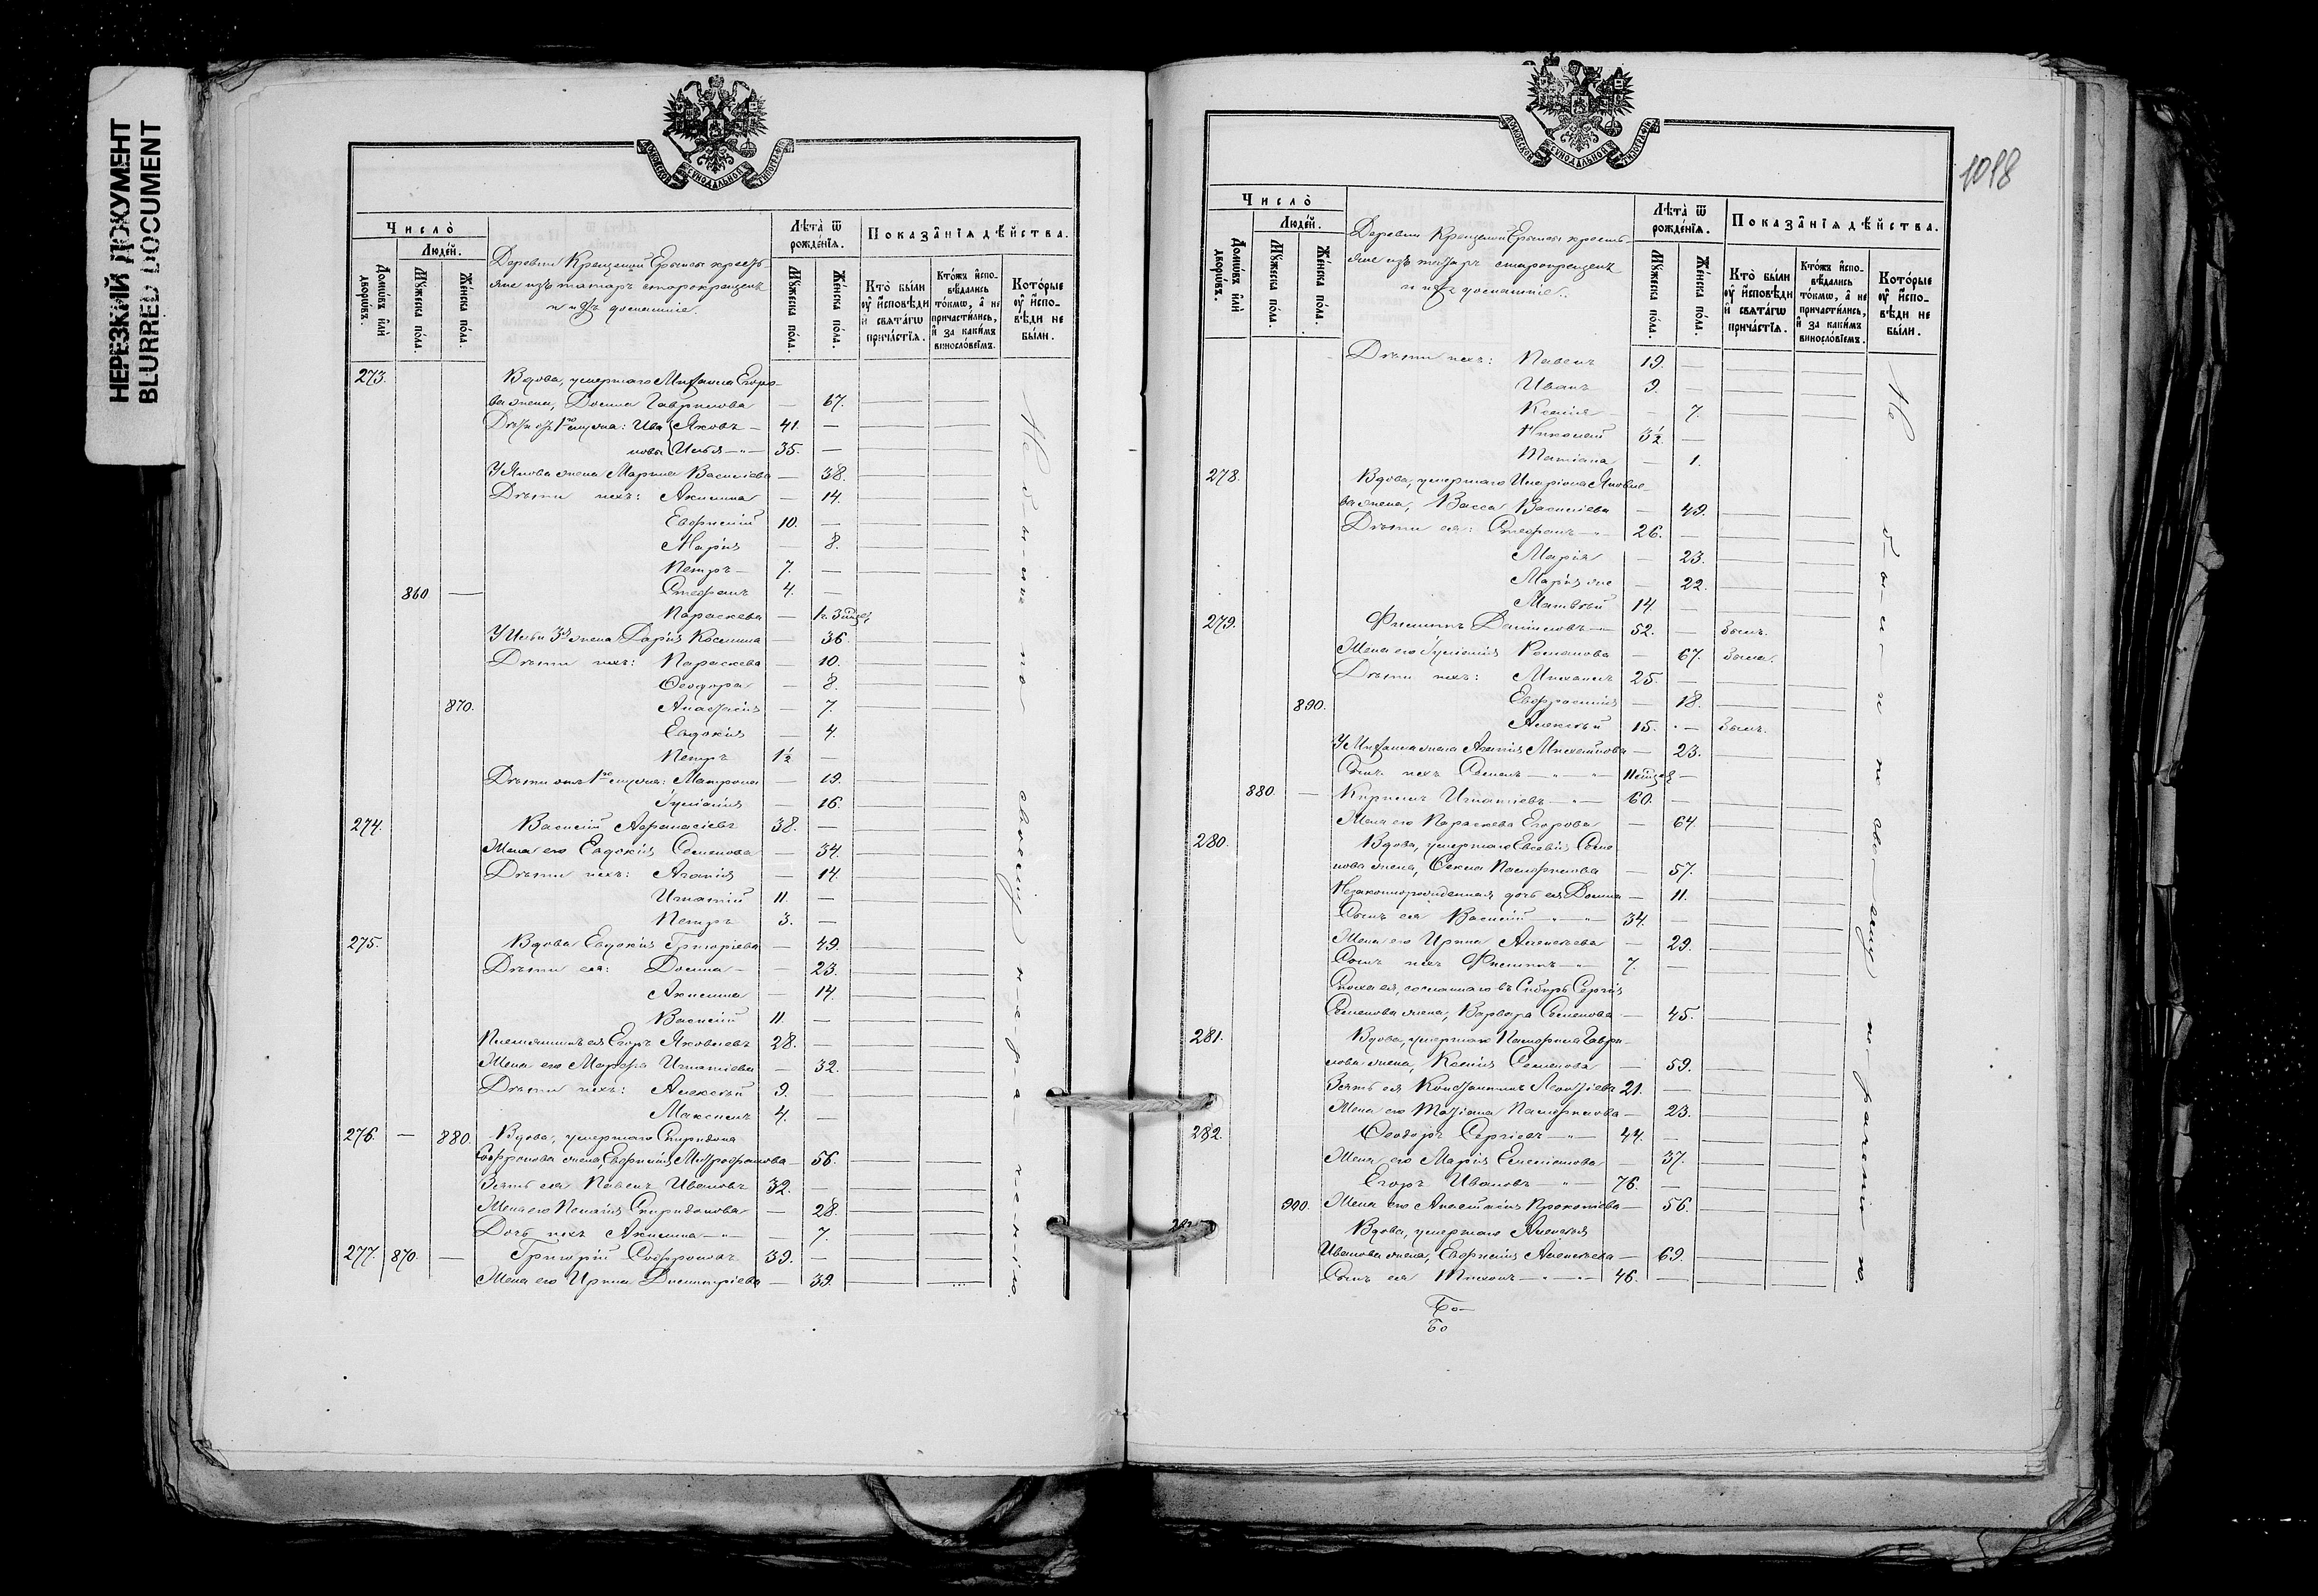 НЕРЕЗКИЙ ДОКУМЕНТ
BLURRED DOCUMENT
МОСКОВСКОЙ СѴНОДАЛЬНОЙ ТИПОГРАФІИ
Число̀
Домѡ́въ и҆лѝ дворѡ́въ.
Люде́й.
Мꙋ́жеска по́ла.
Же́нска по́ла.
Деревни Крещеный Ерыксы кресть-
яне изъ татаръ старокрещенъ
и ихъ домашніе.
Лѣта̀ ѿ рожде́нїѧ.
Мꙋ́жеска по́ла.
Же́нска по́ла.
Показа̑нїѧ дѣ́йства.
Кто̀ бы́ли ᲂу҆ и҆́сповѣди и҆ свѧта́гѡ прича́стїѧ.
Кто́жъ и҆спо-вѣ́дались то́кмѡ, а҆ не причасти́лись, и҆ за каки́мъ винослов́їемъ.
Кото́рые ᲂу҆ и҆́спо-вѣди не бы́ли.
273. Вдова, умершаго Михаила Егоро-
ва жена, Домна Гаврилова — 67.
Дѣти отъ 1го мужа: Ива- Яковъ — 41. —
новы Илья — 35. —
У Якова жена Марина Васильева — 38.
Дѣти ихъ: Акилина — 14.
Евфимій 10. —
Марія — 8.
Петръ — 7. —
860 — Стефанъ 4. —
Параскева —
У Ильи 3я жена Дарія Космина — 36.
Дѣти ихъ: Параскева — 10.
Ѳеодора — 8.
870. Анастасія — 7.
Евдокія — 4.
Петръ 1½ —
Дѣти отъ 1го мужа: Матрона — 19.
Іуліанія — 16.
274. Василій Афанасіевъ 38. —
Жена его Евдокія Семенова — 34.
Дѣти ихъ: Агапія — 14.
Игнатій 11. —
Петръ 3. —
275. Вдова Евдокія Григоріева — 49.
Дѣти ея: Домна — 23.
Акилина — 14.
Василій 11. —
Племянникъ ея Егоръ Яковлевъ 28. —
Жена его Марфа Игнатіева — 32.
Дѣти ихъ: Алексѣй 9. —
Максимъ 4. —
276. — 880. Вдова, умершаго Спиридона
Софронова жена, Евфимія Митрофанова — 56.
Зять ея Павелъ Ивановъ 32. —
Жена его Пелагія Спиридонова — 28.
Дочь ихъ Акилина — 7.
277. 870. — Григорій Софроновъ 39. —
Жена его Ирина Димитріева — 39.
Не были по своему нераченію.
1098
МОСКОВСКОЙ СѴНОДАЛЬНОЙ ТИПОГРАФІИ
Число̀
Домѡ́въ и҆лѝ дворѡ́въ.
Люде́й.
Мꙋ́жеска по́ла.
Же́нска по́ла.
Деревни Крещеный Ерыксы кресть-
яне изъ татаръ старокрещенъ
и ихъ домашніе.
Лѣта̀ ѿ рожде́нїѧ.
Мꙋ́жеска по́ла.
Же́нска по́ла.
Показа̑нїѧ дѣ́йства.
Кто̀ бы́ли ᲂу҆ и҆́сповѣди и҆ свѧта́гѡ прича́стїѧ.
Кто́жъ и҆спо-вѣ́дались то́кмѡ, а҆ не причасти́лись, и҆ за каки́мъ винослов́їемъ.
Кото́рые ᲂу҆ и҆́спо-вѣди не бы́ли.
Дѣти ихъ: Павелъ 19. —
Иванъ 9. —
Ксенія — 7.
Николай 3½ —
Татіана — 1.
278. Вдова, умершаго Иларіона Яковле-
ва жена, Васса Васильева — 49.
Дѣти ея: Стефанъ — 26. —
Марія — 23.
Марія же — 22.
Матвѣй 14. —
279. Филиппъ Даниловъ — 52. — былъ.
Жена его Іуліанія Романова — 67. была.
Дѣти ихъ: Михаилъ 25. —
890. Евфросинія — 18.
Алексѣй 15. — былъ.
У Михаила жена Агапія Михайлова — 23.
Сынъ ихъ Семенъ —
880. — Кириллъ Игнатіевъ — 60. —
Жена его Параскева Егорова — 64.
280. Вдова, умершаго Евсевія Семе-
нова жена, Ѳекла Памфилова — 57.
Незаконнорожденная дочь ея Домна — 11.
Сынъ ея Василій — 34. —
Жена его Ирина Алексѣева — 29.
Сынъ ихъ Филиппъ — 7. —
Сноха ея, сосланнаго въ Сибирь Сергія
Семенова жена, Варвара Семенова — 45.
281. Вдова, умершаго Памфила Гаври-
лова жена, Ксенія Семенова — 59.
Зять ея Константинъ Леонтіевъ 21. —
Жена его Татіана Памфилова — 23.
282. Ѳеодоръ Сергіевъ — 44. —
Жена его Марія Емеліанова — 37.
Егоръ Ивановъ — 76. —
900. Жена его Анастасія Прокопіева — 56.
Вдова, умершаго Алексѣя
Иванова жена, Евфимія Алексѣева — 69.
Сынъ ея Тихонъ — 46. —
Не были по своему нераченію.
Бо-
бо